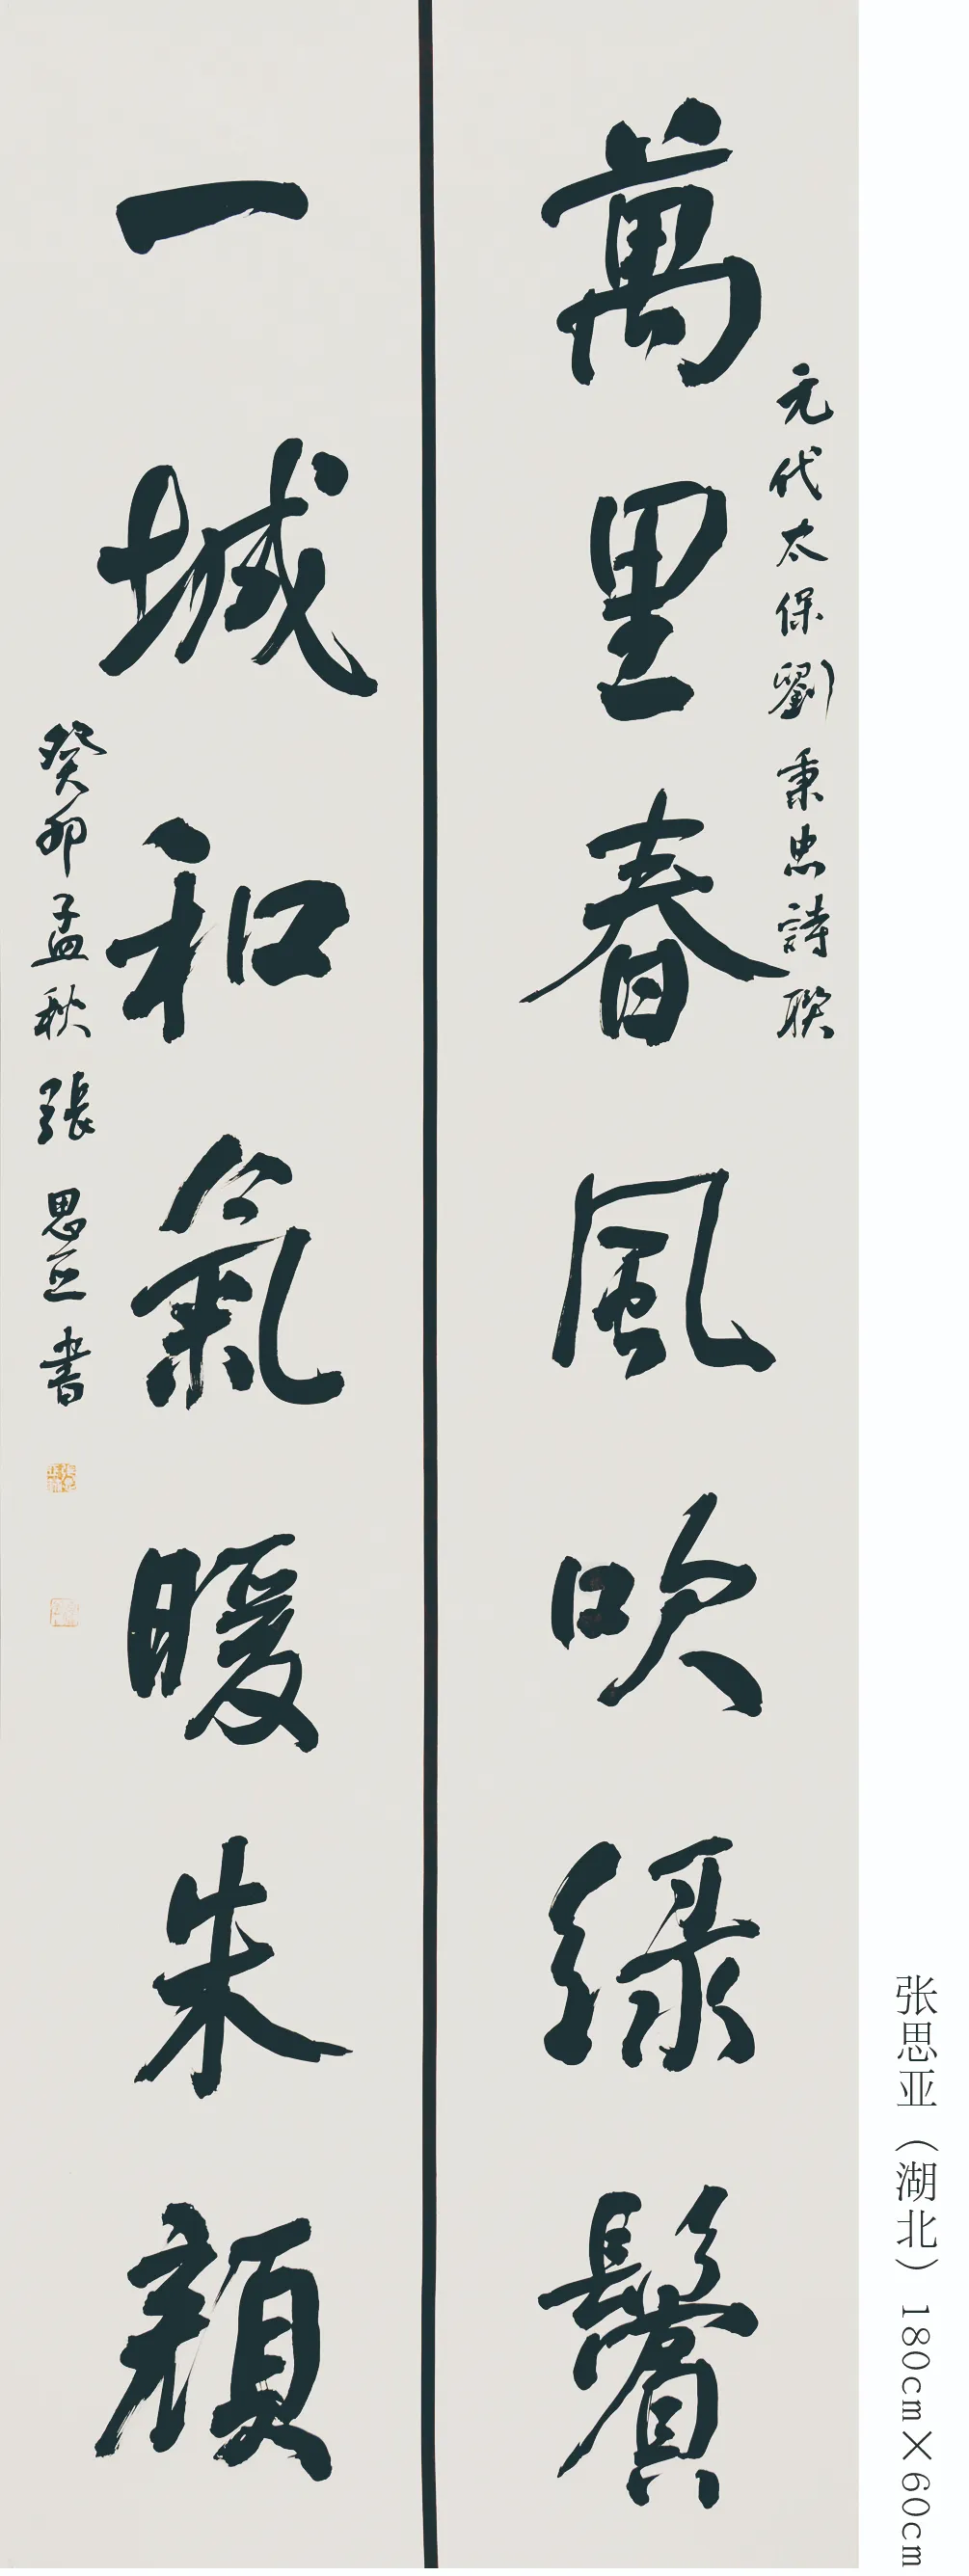 元代太保劉秉忠詩聯
萬里春風吹綠鬢
一城和氣暖朱顏
癸卯孟秋張思亞書
张思亚（湖北）180cm×60cm